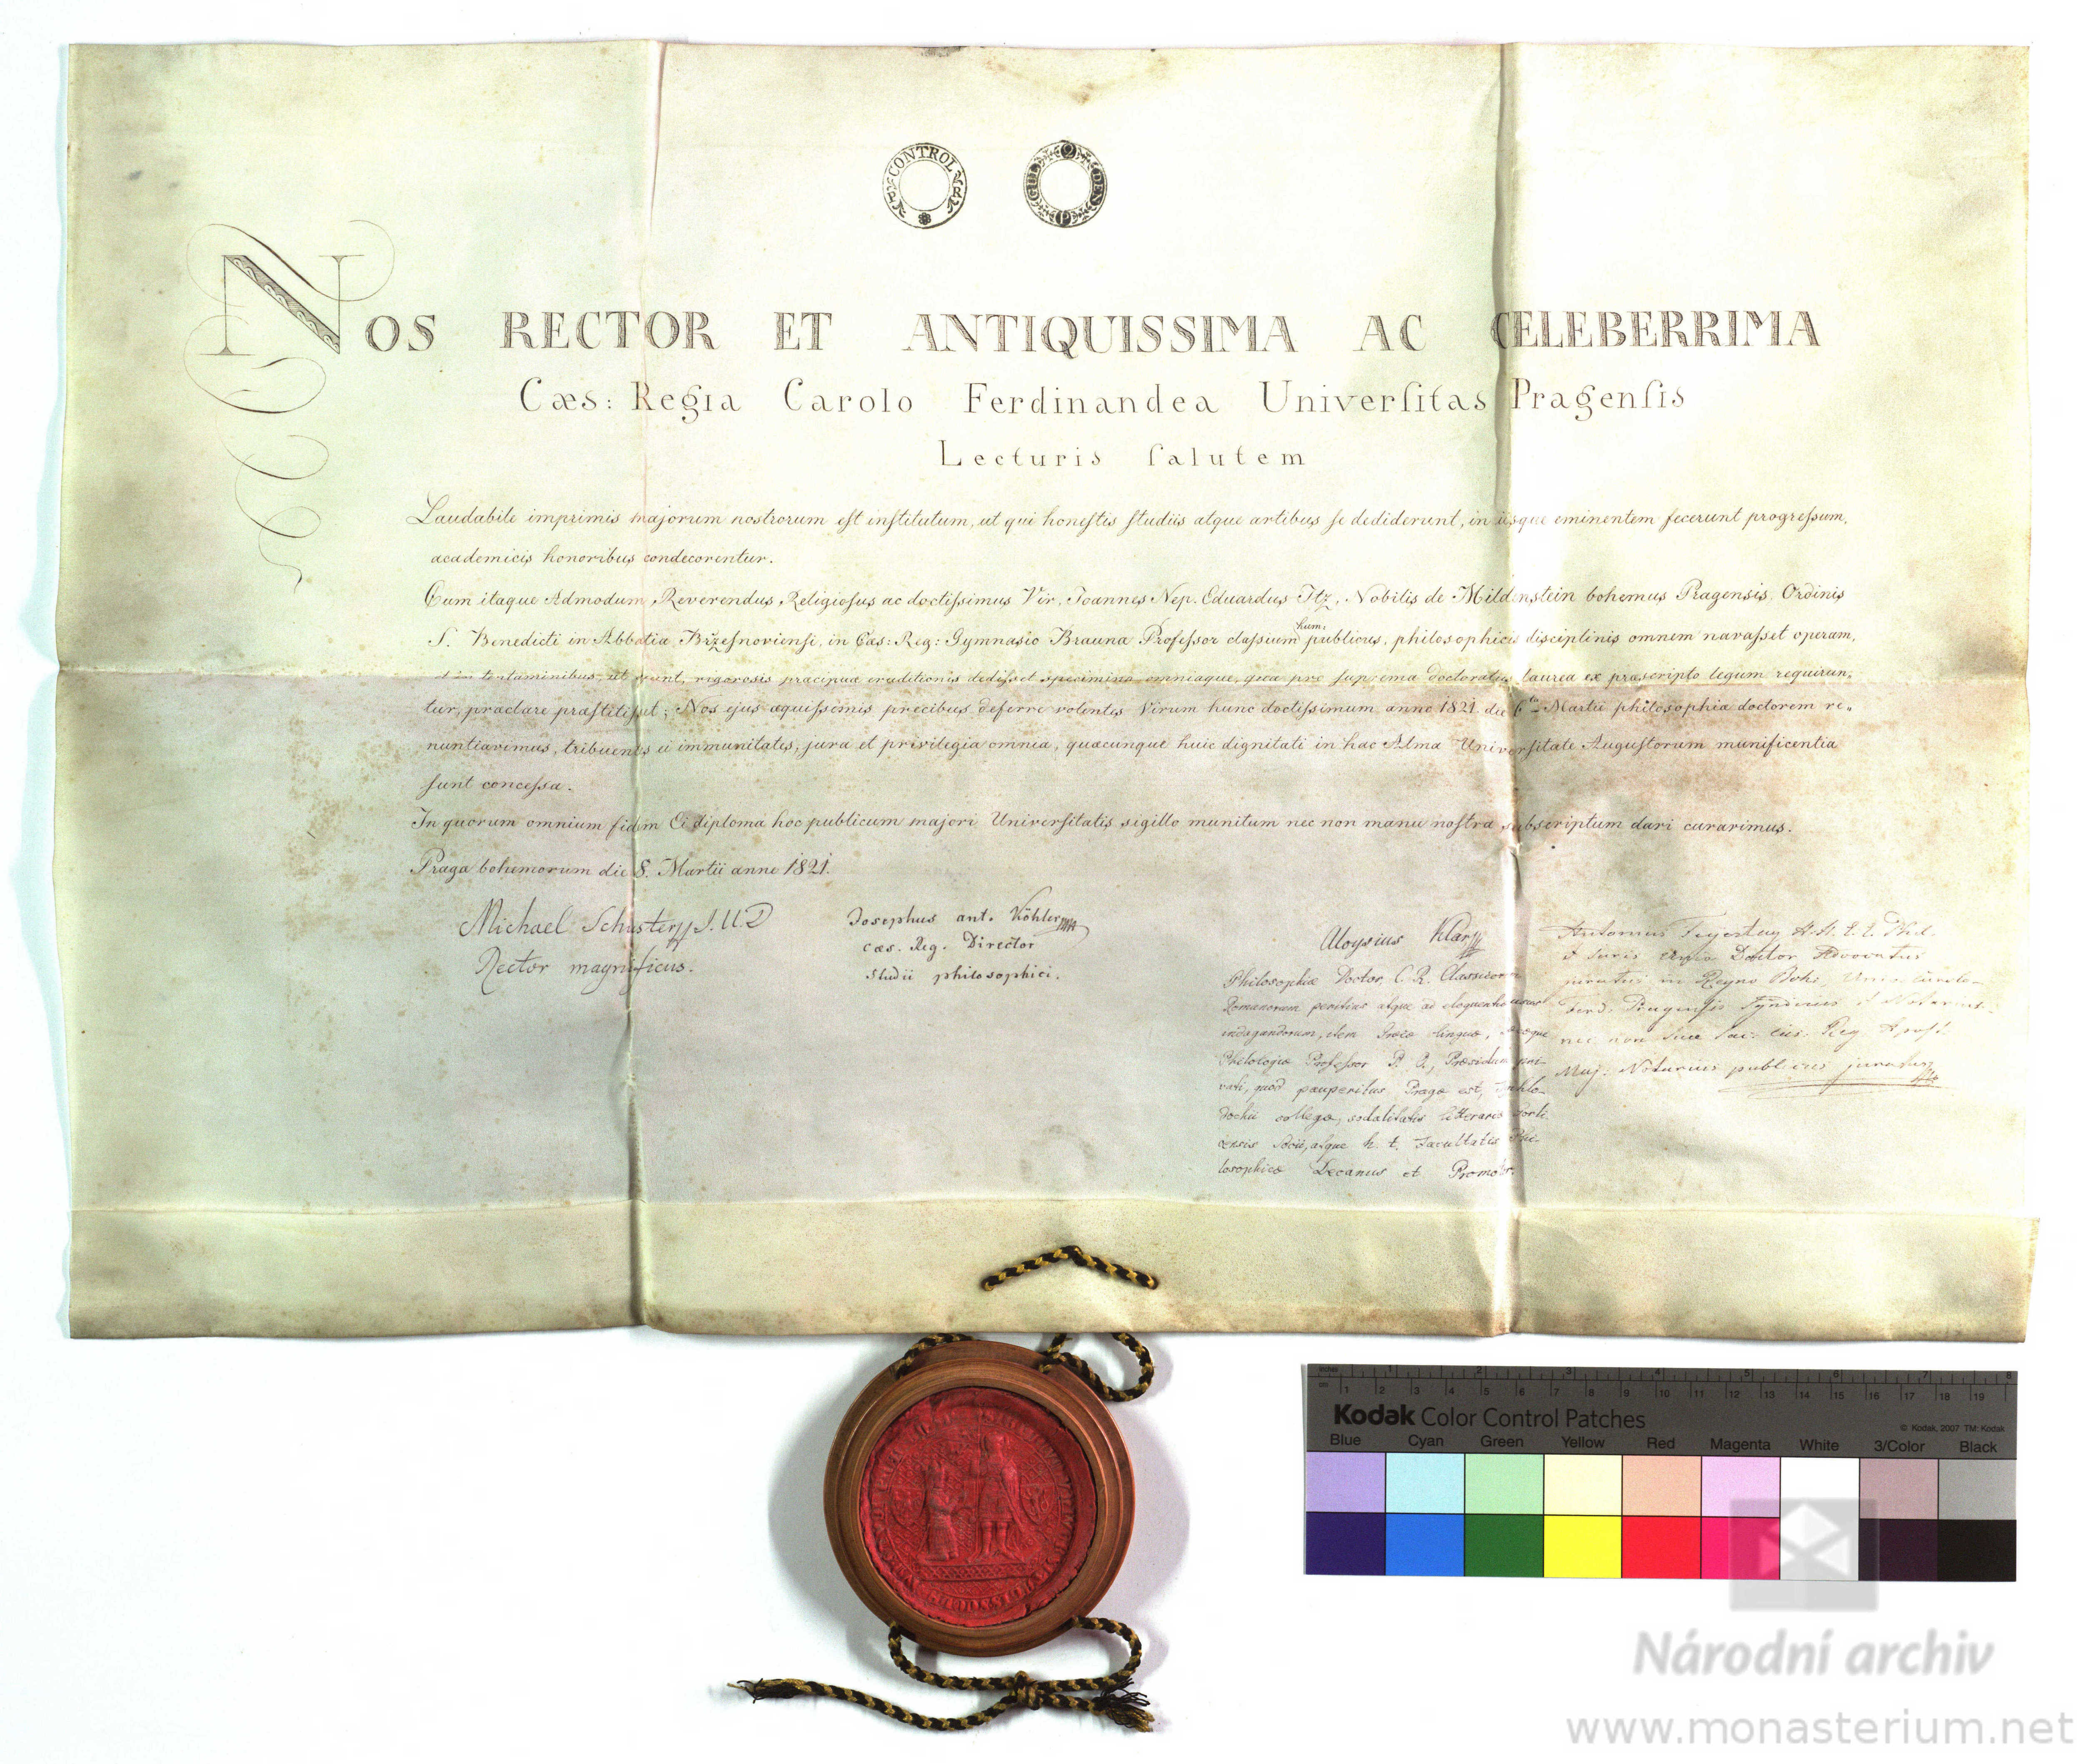 CONTROL
GUL DEN
NOS RECTOR ET ANTIQUISSIMA AC CELEBERRIMA
Cæs: Regia Carolo Ferdinandea Univerſitas Pragenſis
Lecturis ſalutem
Laudabile imprimis majorum nostrorum eſt inſtitutum, ut qui honeſtis ſtudiis atque artibus ſe dediderunt, in iisque eminentem fecerunt progreſsum,
academicis honoribus condecorentur.
Cum itaque Admodum Reverendus Religioſus ac doctiſsimus Vir, Joannes Nep. Eduardus Itz, Nobilis de Mildenstein bohemus Pragensis, Ordinis
S. Benedicti in Abbatia Brzeſnovienſi, in Cæs: Reg: Gymnasio Brauna Profeſsor claſsium hum: publicus, philosophicis disciplinis omnem navaſset operam,
et in tentaminibus, ut ajunt, rigorosis præcipuæ eruditionis dediſset specimina omniaque, quæ pro ſuprema doctoratus laurea ex præscripto legum requirun„
tur, præclare præſtitiſset; Nos ejus æquiſsimis precibus deferre volentes Virum hunc doctiſsimum anno 1821 die 6ta Martii philosophiæ doctorem re„
nuntiavimus, tribuentes ei immunitates, jura et privilegia omnia, quæcunque huic dignitati in hac Alma Univerſitate Auguſtorum munificentia
ſunt conceſsa.
In quorum omnium fidem Ei diploma hoc publicum majori Univerſitatis sigillo munitum nec non manu noſtra subscriptum dari curavimus.
Praga bohemorum die 8. Martii anno 1821.
Michael Schuster J.U.D
Rector magnificus.
Josephus ant. Köhler
cæs. Reg. Director
Studii philosophici.
Aloysius Klar
Philosophiæ Doctor, C. R. Classicorum
Romanorum penitius atque ad eloquentiæ usus
indagandorum, item Græcæ linguæ,
Philologiæ Profeſsor P. O., Præsidii pri-
vati, quod pauperibus Pragæ est,
dochii collega, sodalitatis litterariæ Gorli-
zensis Socii, atque h. t. Facultatis Phi-
losophicæ Decanus et Promotor.
Antonius
et Juris Doctor Advocatus
juratus in Regno Boh:
Ferd. Pragensis Syndicus et Notarius
nec non Suæ Sac: Cæs: Reg Apost:
Maj: Notarius publicus juratus
inches 1 2 3 4 5 6 7 8
cm 1 2 3 4 5 6 7 8 9 10 11 12 13 14 15 16 17 18 19
Kodak Color Control Patches
© Kodak, 2007 TM: Kodak
Blue Cyan Green Yellow Red Magenta White 3/Color Black
Národní archiv
www.monasterium.net